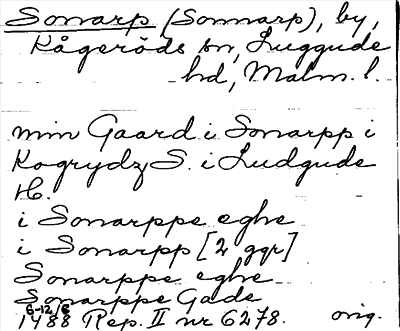 Sonarp (Sonnarp), by,
Kågeröds sn, Luggude
hd, Malm. l.
min Gaard i Sonarpp i
Kogrydz S. i Ludgude
H.
i Sonarppe eghe
i Sonarpp [2 ggr]
Sonarppe eghe
Sonarppe Gade
6-12/6
1488 Rep. II nr 6278. orig.